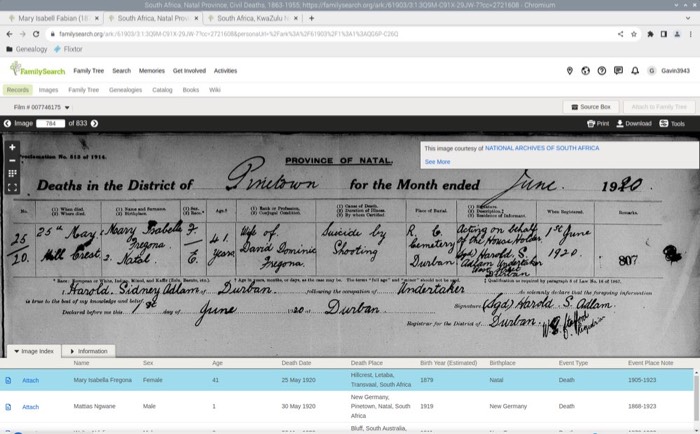 South Africa, Natal Province, Civil Deaths, 1863-1955; https://familysearch.org/ark:/61903/3:1:3Q9M-C91X-29JW-7?cc=2721608 - Chromium
Mary Isabell Fabian
South Africa, Natal Prov
South Africa, KwaZulu N
familysearch.org/ark:/61903/3:1:3Q9M-C91X-29JW-7?cc=2721608
Genealogy
FamilySearch Family Tree Search Memories Get Involved Activities Gavin3943
Records Images Family Tree Genealogies Catalog Books Wiki
Film # 007746175 Source Box Attach to Family Tree
Image 784 of 833 Print Download Tools
This image courtesy of NATIONAL ARCHIVES OF SOUTH AFRICA
See More
PROVINCE OF NATAL.
Deaths in the District of Pinetown for the Month ended June. 1920.
No. Age Place of Burial When Registered. Remarks.
25th May, Mary Isabella F. 41 Wife of Suicide by R. C. Acting on behalf 1st June
Fregona years David Dominic Shooting Cemetery of the Householder 1920.
Hill Crest. Natal E. Fregona. Durban (Sgd) Harold. S. Adlam Undertaker 807
Durban
I Harold. Sidney Adlam, Durban. following the occupation of Undertaker do solemnly declare that the foregoing information
is true to the best of my knowledge and belief. Signature (Sgd) Harold. S. Adlam.
Declared before me this 1st day of June 1920 Durban
Registrar for the District of Durban.
Image Index Information
Name Sex Age Death Date Death Place Birth Year (Estimated) Birthplace Event Type Event Place Note
Attach Mary Isabella Fregona Female 41 25 May 1920 Hillcrest, Letaba, Transvaal, South Africa 1879 Natal Death 1905-1923
Attach Mattas Ngwane Male 1 30 May 1920 New Germany, Pinetown, Natal, South Africa 1919 New Germany Death 1868-1923
Bluff, South Australia,